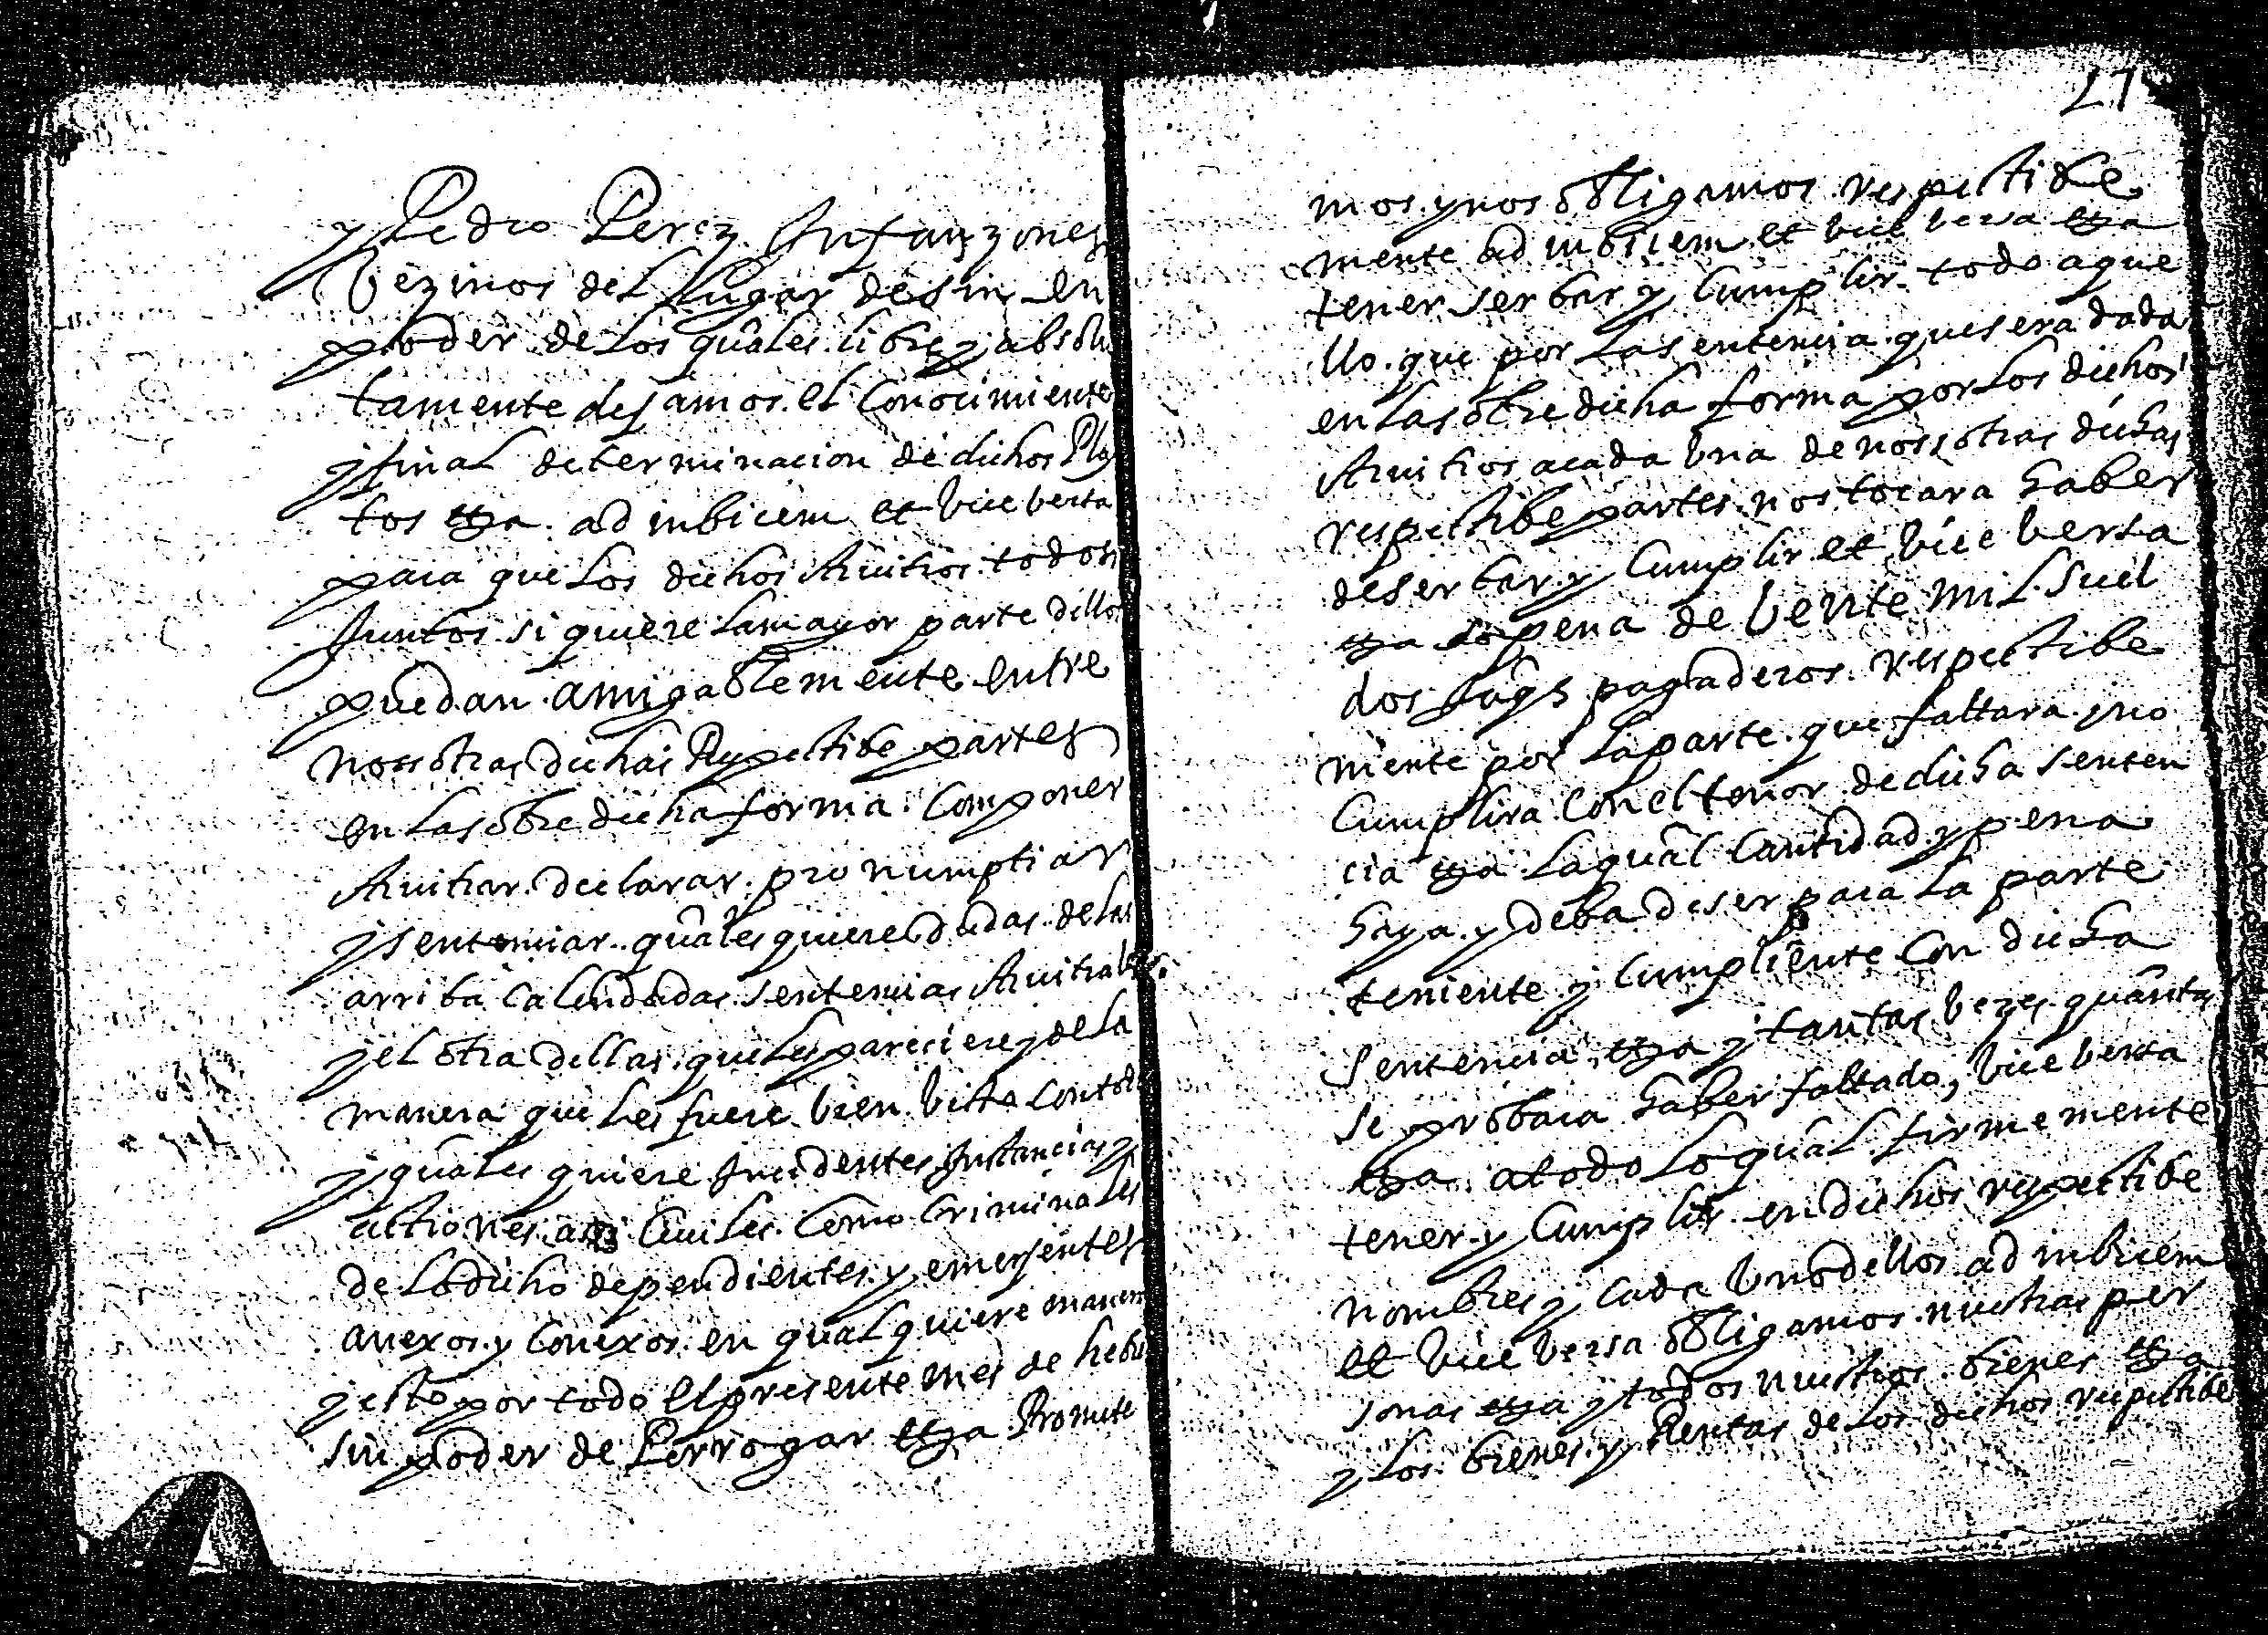 y Pedro Perez Infanzones
Vezinos del Lugar de Sin en
poder de los quales libre y absolu
tamente dejamos el conocimiento
y final determinacion de dichos Pley
tos etza ad inbicem et vice versa
para que los dichos Arvitros todos
Juntos si quiere la mayor parte dellos
puedan amigablemente entre
nossotras dichas Respectibe partes
en la sobre dicha forma componer
Arvitrar declarar pronumptiar
y sentenciar quales quiere dudas de las
arriba calendadas sentencias Arvitrales
y el otra dellas que les pareciere y de la
manera que les fuere bien visto con todos
y quales quiere Incidentes Instancias y
actiones assi Civiles como criminales
de lo dicho dependientes y emerjentes
anexos y conexos en qual quiere manera
y esto por todo el presente mes de hebr
sin poder de Porrogar etza Promete
27
mos y nos obligamos respectibe
mente ad inbicem et vice versa etza
tener serbar y cumplir todo aque
llo que por la sentencia que sera dada
en la sobre dicha forma por los dichos
Arvitros a cada una de nossotras dichas
respectibe partes nos tocara haber
de serbar y cumplir et vice versa
etza so pena de bente mil suel
dos Jaqs pagaderos respectibe
mente por la parte que faltara y no
cumplira con el tenor de dicha senten
cia etza la qual cantidad y pena
haya y deba de ser para la parte
teniente y cumpliente con dicha
sentencia etza y tantas vezes quantas
se probara haber faltado, vice versa
etza a todo lo qual firmemente
tener y cumplir en dichos respectibe
nombres y cada uno dellos ad inbicem
et vice versa obligamos nuestras per
sonas etza y todos nuestros bienes etza
y los bienes y Rentas de los dichos respectibe